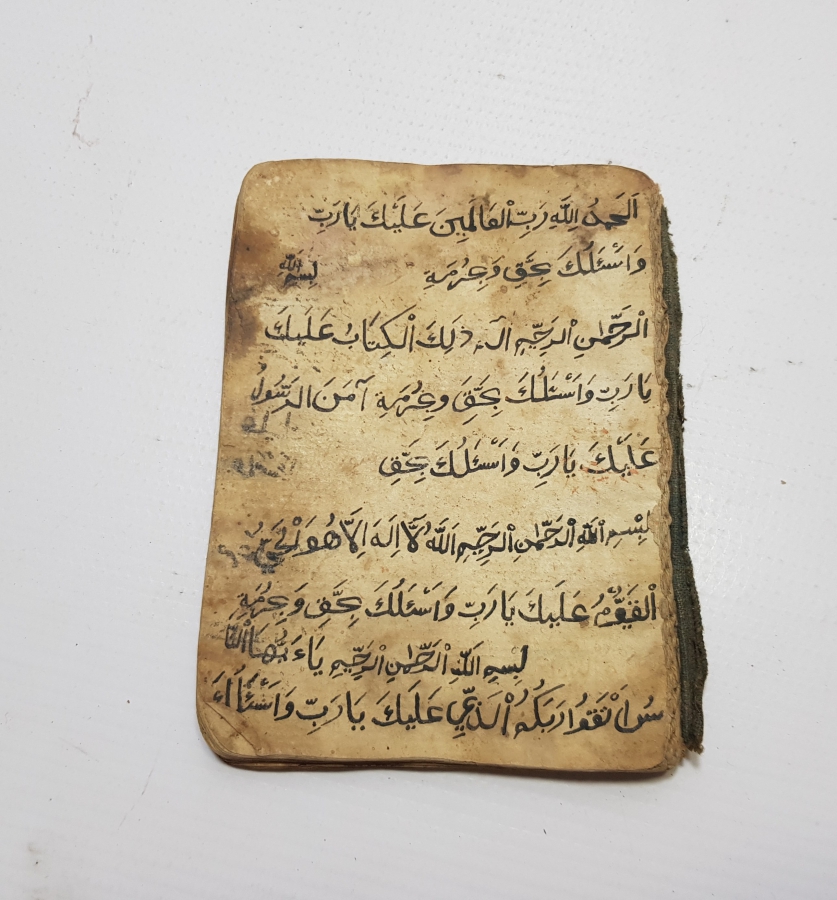 اَلْحَمْدُ لِلَّهِ رَبِّ الْعَالَمِينَ عَلَيْكَ يَا رَبِّ
وَاَسْئَلُكَ بِحَقِّ وَبِحُرْمَةِ بِسْمِ اللَّهِ
الْرَّحْمٰنِ الْرَّحِيْمِ الٓمٓ ذٰلِكَ الْكِتَابُ عَلَيْكَ
يَا رَبِّ وَاَسْئَلُكَ بِحَقِّ وَبِحُرْمَةِ آمَنَ الرَّسُولُ
عَلَيْكَ يَا رَبِّ وَاَسْئَلُكَ بِحَقِّ
بِسْمِ اللَّهِ الْرَّحْمٰنِ الْرَّحِيْمِ اَللَّهُ لَآ اِلَهَ اِلَّا هُوَ الْحَيُّ
اَلْقَيُّوْمُ عَلَيْكَ يَا رَبِّ وَاَسْئَلُكَ بِحَقِّ وَبِحُرْمَةِ
بِسْمِ اللَّهِ الْرَّحْمٰنِ الْرَّحِيْمِ يَاءَ يُّهَا الْنَّا
سُ اتَّقُوا رَبَكُمُ الْذِّيْ عَلَيْكَ يَا رَبِّ وَاَسْئَلُكَ